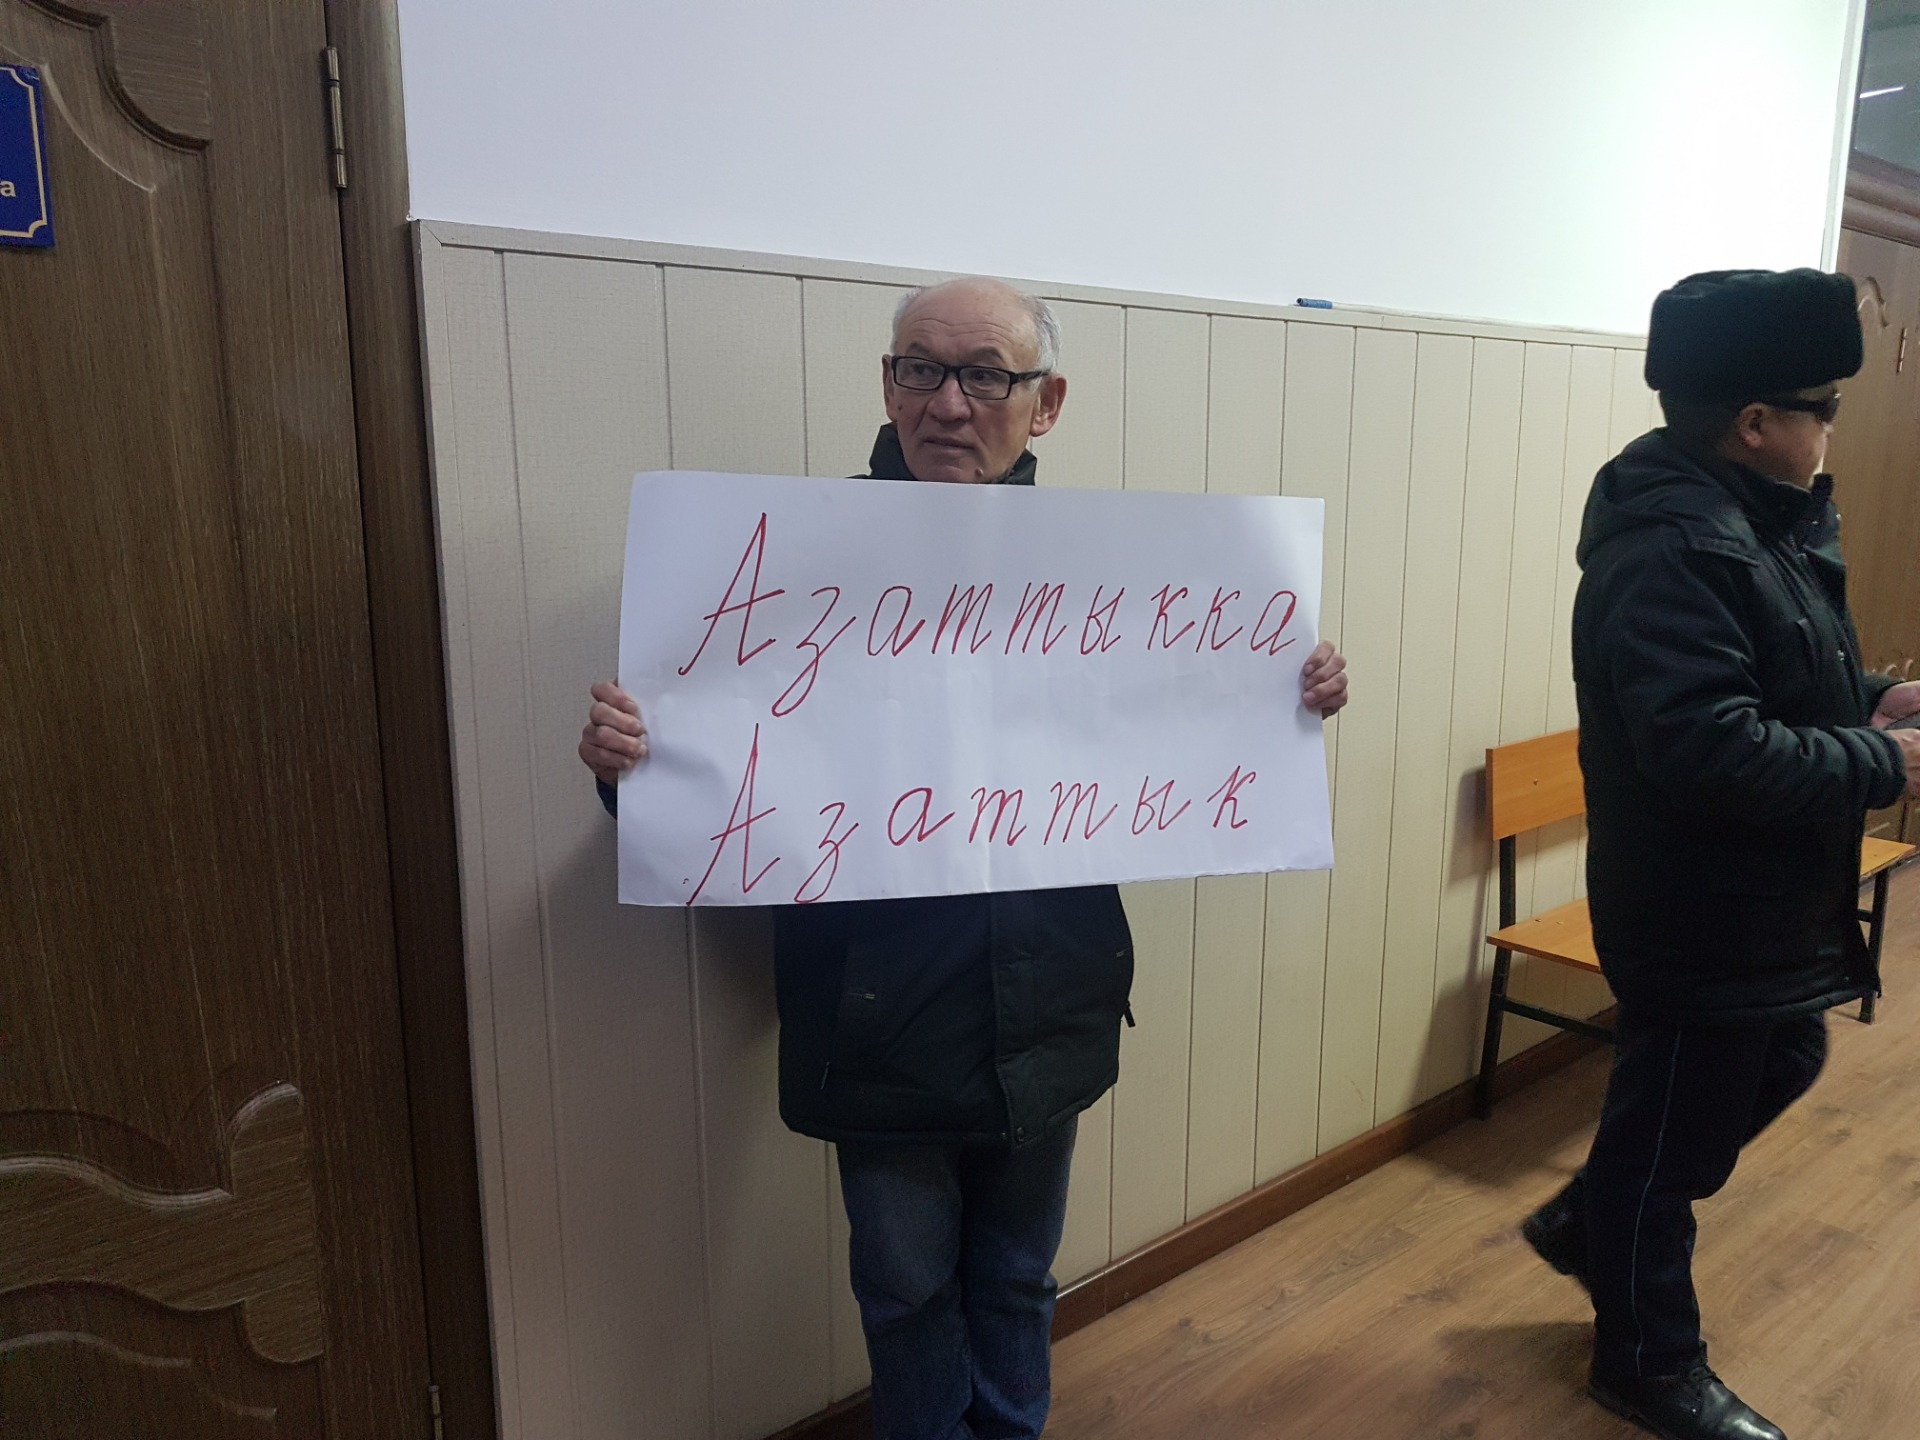 Азаттыкка
Азаттык